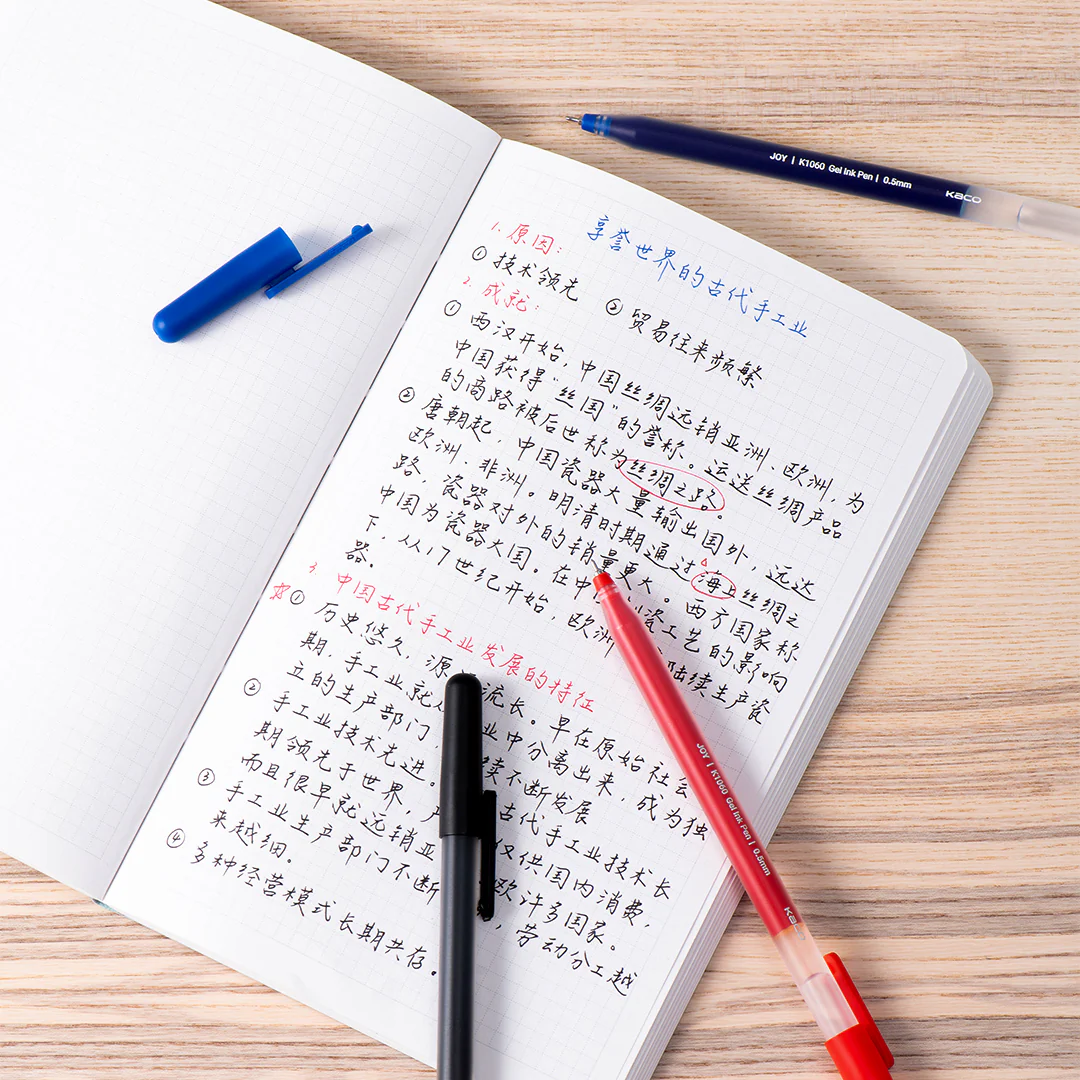 享誉世界的古代手工业
1. 原因:
① 技术领先 ② 贸易往来频繁
2. 成就:
① 西汉开始,中国丝绸远销亚洲、欧洲,为
中国获得"丝国"的誉称。运送丝绸产品
的商路被后世称为丝绸之路。
② 唐朝起,中国瓷器大量输出国外,远达
欧洲、非洲。明清时期通过海上丝绸之
路,瓷器对外的销量更大。西方国家称
中国为瓷器大国。在中 瓷工艺的影响
下,从17世纪开始,欧洲 陆续生产瓷
器.
3. 中国古代手工业发展的特征
① 历史悠久,源 流长。早在原始社会
期,手工业就 业中分离出来,成为独
立的生产部门, 续不断发展
② 手工业技术先进。 古代手工业技术长
期领先于世界, 仅供国内消费,
而且很早就远销亚 欧许多国家。
③ 手工业生产部门不断 ,劳动分工越
来越细.
④ 多种经营模式长期共存。
JOY | K1060 Gel Ink Pen | 0.5mm KACO
JOY | K1060 Gel Ink Pen | 0.5mm